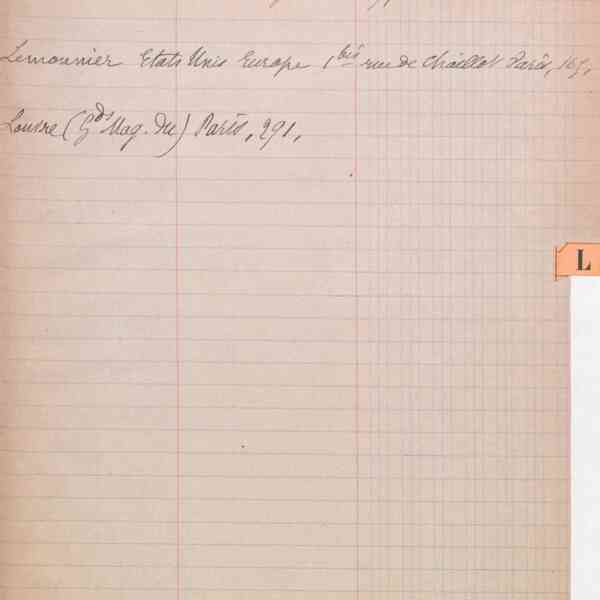 Lemonnier Etats Unis Europe 1bis rue de Chaillot Paris, 165,
Louvre (Gds Mag. du) Paris, 291,
L